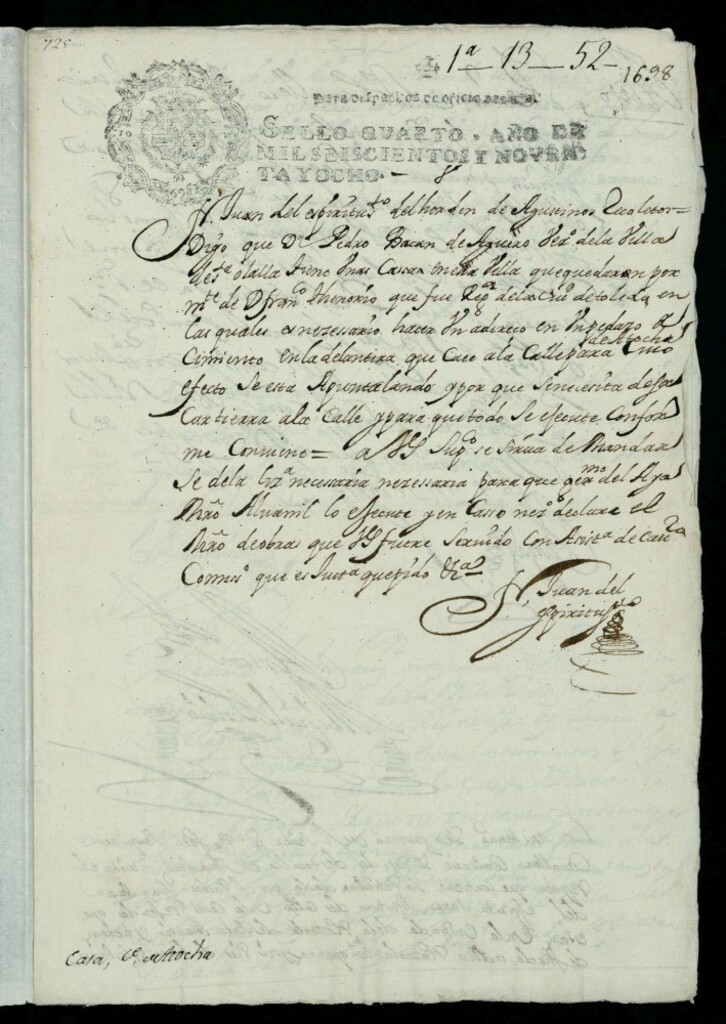 725
1ª — 13 — 52 —
1698
para despachos de oficio
SELLO QVARTO, AÑO DE
MIL SEISCIENTOS Y NOVEN
TA Y OCHO.
Fr. Juan del espiritu sto del horden de Agustinos Recoletos =
Digo que Dn Pedro Bacan de Aguero Vezo de la Villa
de sta olalla tiene Unas Cassas en esta Villa que quedaron por
mte de D franco thenorio que fue Rexor de la Ciud de toledo en
las quales es nezessario hacer Un adereco en Un pedazo de
Cimiento en la delantera que Cae a la Calle de Atocha para Cuio
efecto se esta Apuntalando y por que se necesita de sa
car tierra a la Calle y para que todo se ejecute Confor
me Conviene = a VS Suppco se sirva de Mandar
se de la liza necessaria nezessaria para que germo del Aya
Mro Alvanil lo efecute y en Casso nezo declare el
Mro de obras que VS fuere servido con Asista de Cauo
Comisso que es Justa que pido &ca
Fr. Juan del
espiritu sto
Casa, Ce de Atocha